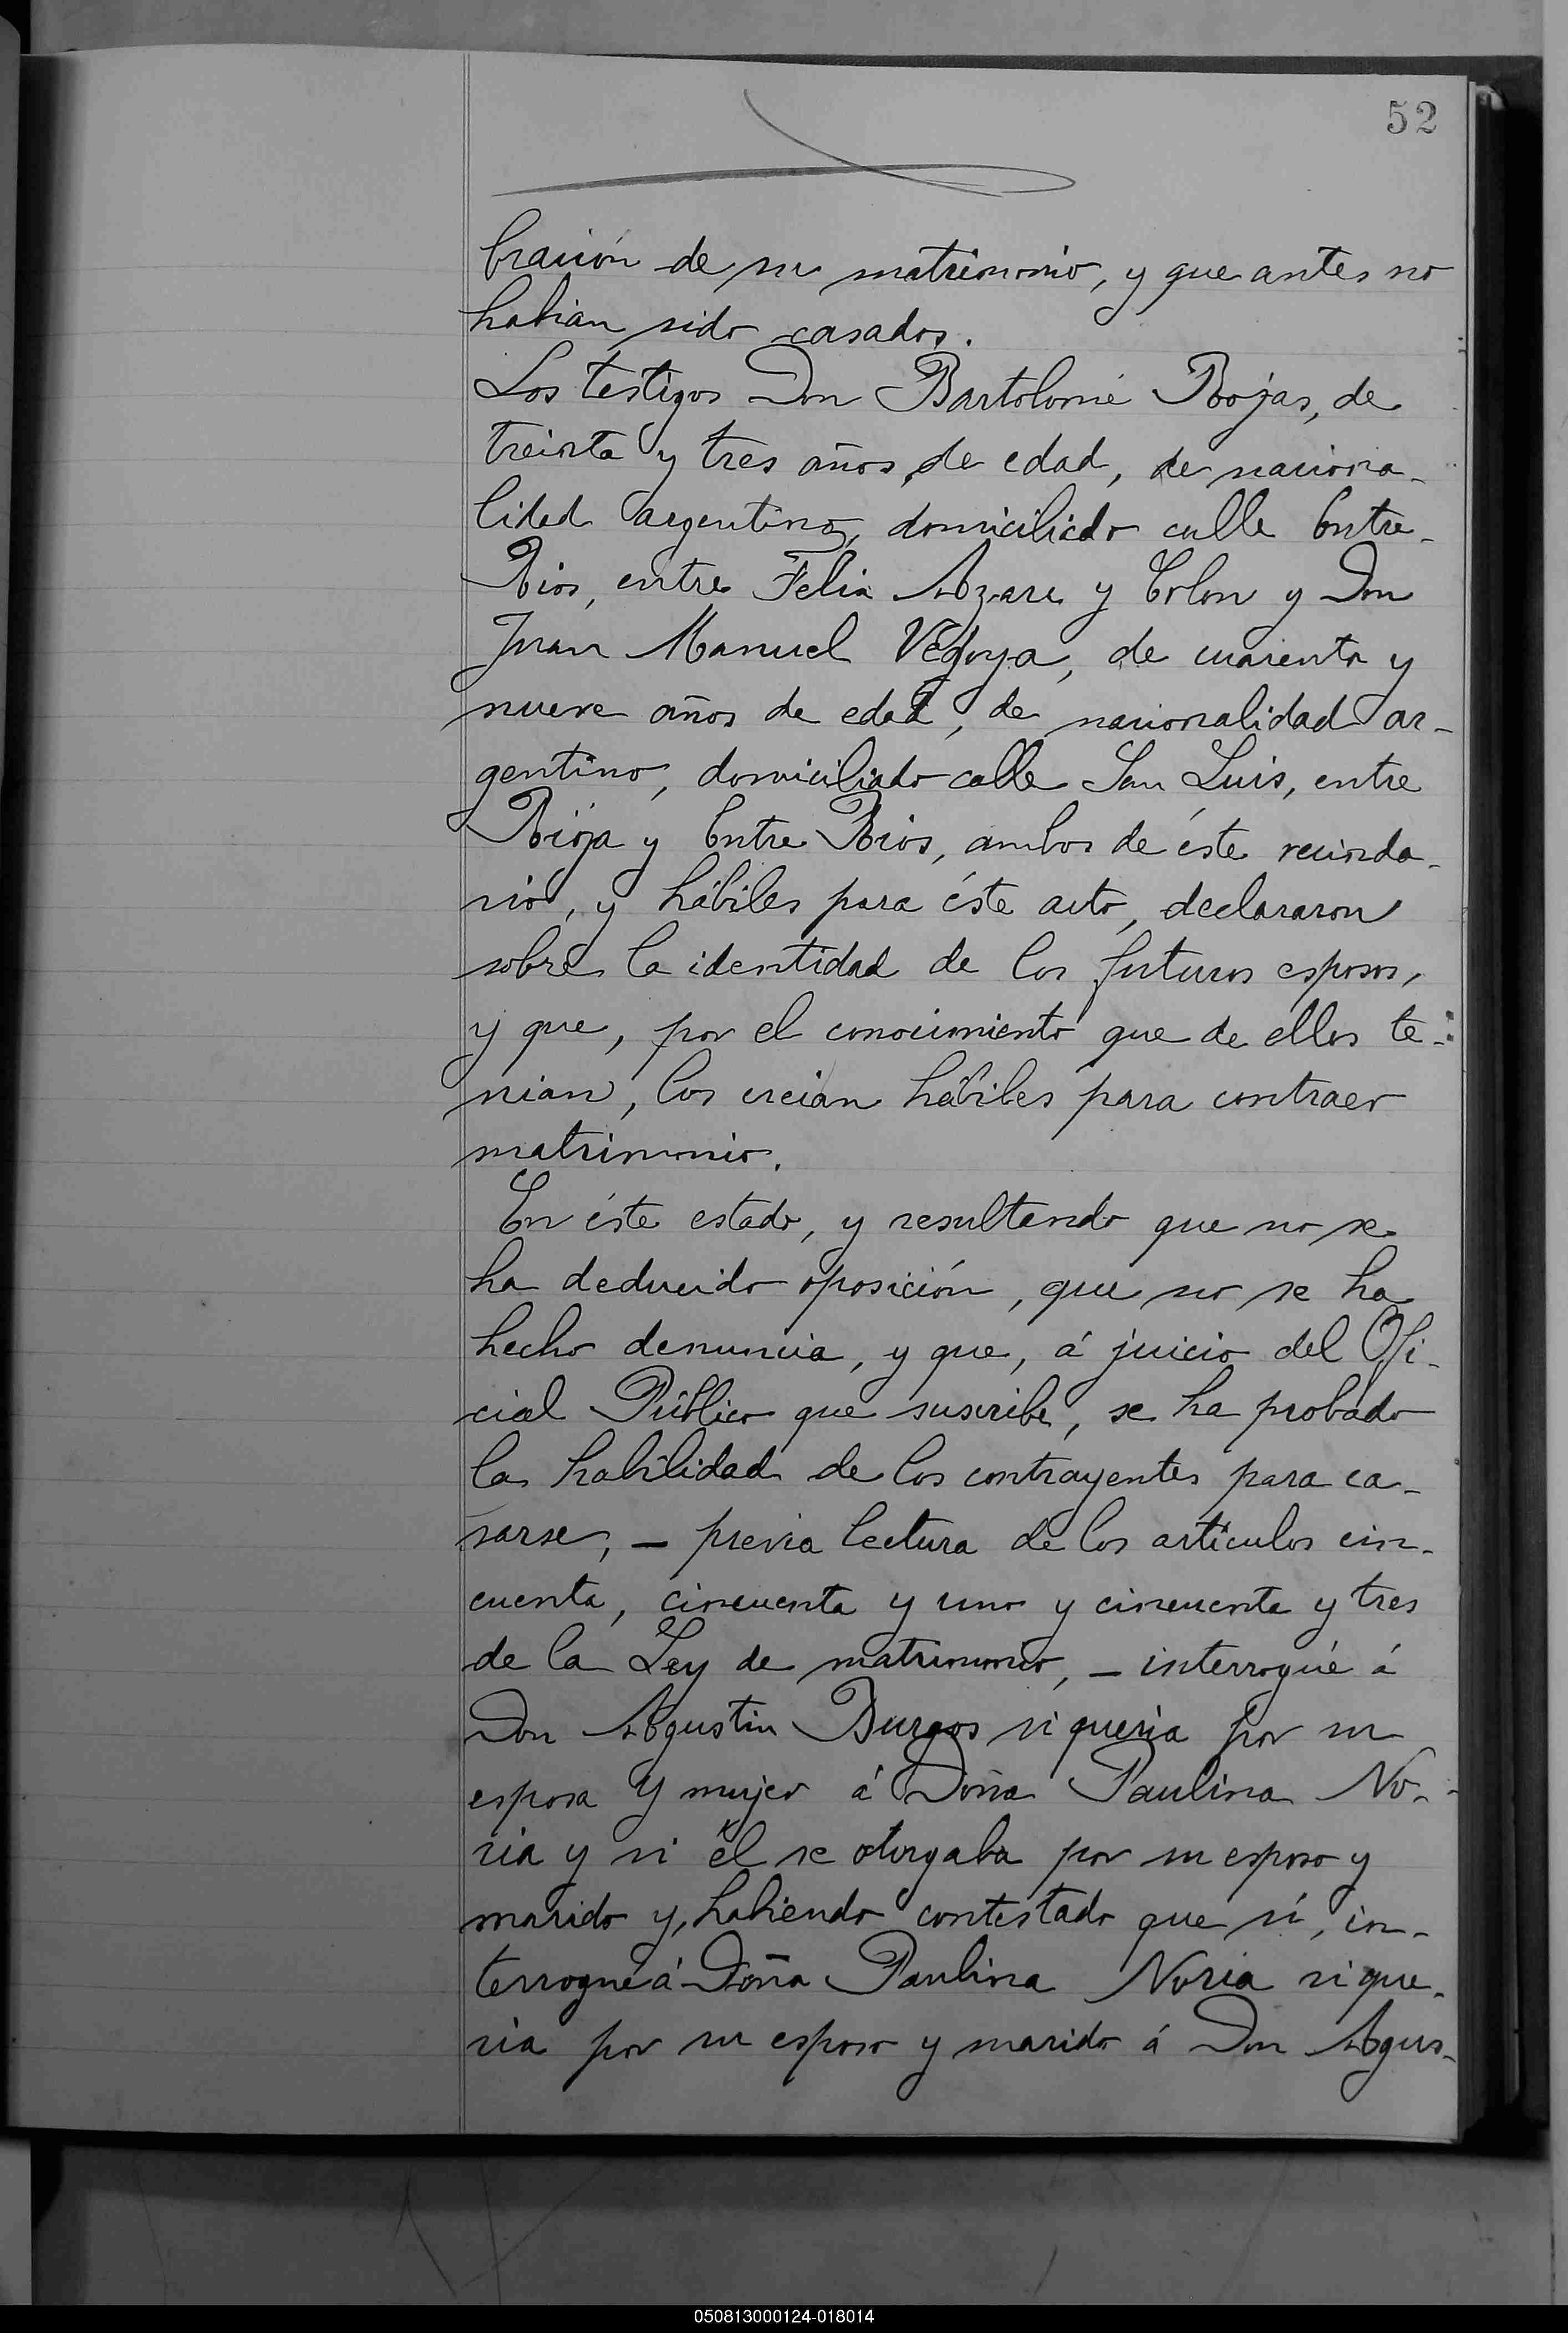 52
bración de su matrimonio, y que antes no
habian sido casados.
Los testigos Don Bartolomé Rojas, de
treinta y tres años de edad, de naciona-
lidad argentino, domiciliado calle Entre-
Rios, entre Felix Azara y Colon y Don
Juan Manuel Vedoya, de cuarenta y
nueve años de edad, de nacionalidad ar-
gentino, domiciliado calle San Luis, entre
Rioja y Entre Rios, ambos de éste vecinda-
rio, y hábiles para éste acto, declararon
sobre la identidad de los futuros esposos,
y que, por el conocimiento que de ellos te-
nian, los creian hábiles para contraer
matrimonio.
En éste estado, y resultando que no se
ha deducido oposición, que no se ha
hecho denuncia, y que, á juicio del Ofi-
cial Público que suscribe, se ha probado
la habilidad de los contrayentes para ca-
sarse, - previa lectura de los artículos cin-
cuenta, cincuenta y uno y cincuenta y tres
de la Ley de matrimonio, - interrogué á
Don Agustin Burgos si queria por su
esposa y mujer á Doña Paulina No-
ria y si él se otorgaba por su esposo y
marido y, habiendo contestado que sí, in-
terrogué á Doña Paulina Noria si que-
ria por su esposo y marido á Don Agus-
050813000124-018014